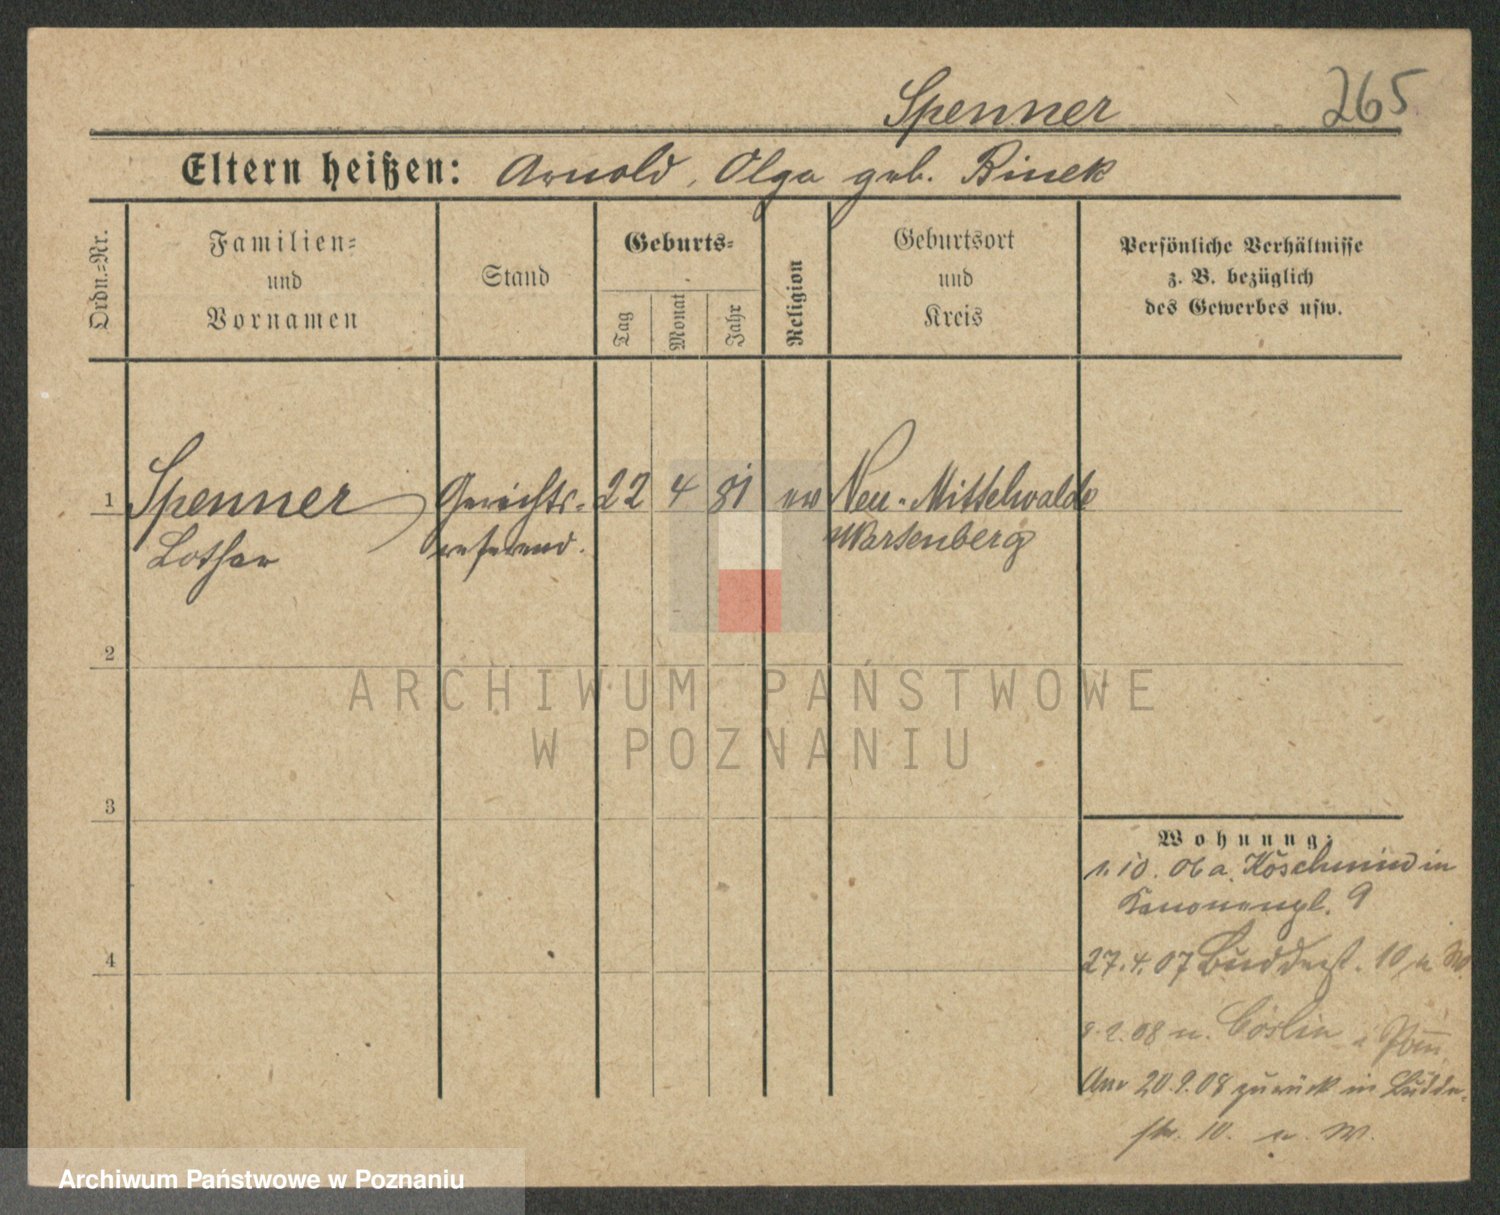 Spenner 265
Eltern heißen: Arnold, Olga geb. Binek
Ordn.=Nr.
Familien= und Vornamen
Stand
Geburts=
Tag
Monat
Jahr
Religion
Geburtsort und Kreis
Persönliche Verhältnisse
z. B. bezüglich
des Gewerbes usw.
1 Spenner Gerichts- 22 4 81 ev Neu-Mittelwalde
Lothar referend. Wartenberg
2
ARCHIWUM PAŃSTWOWE
W POZNANIU
3
Wohnung:
1. 10. 06 a. Koschmin in
Kanonenpl. 9
4
27.4.07 Buddestr. 10 a W
2.08 n. Cöslin i Pom
20.9.08 zurück in Budde-
str. 10. a. W.
Archiwum Państwowe w Poznaniu